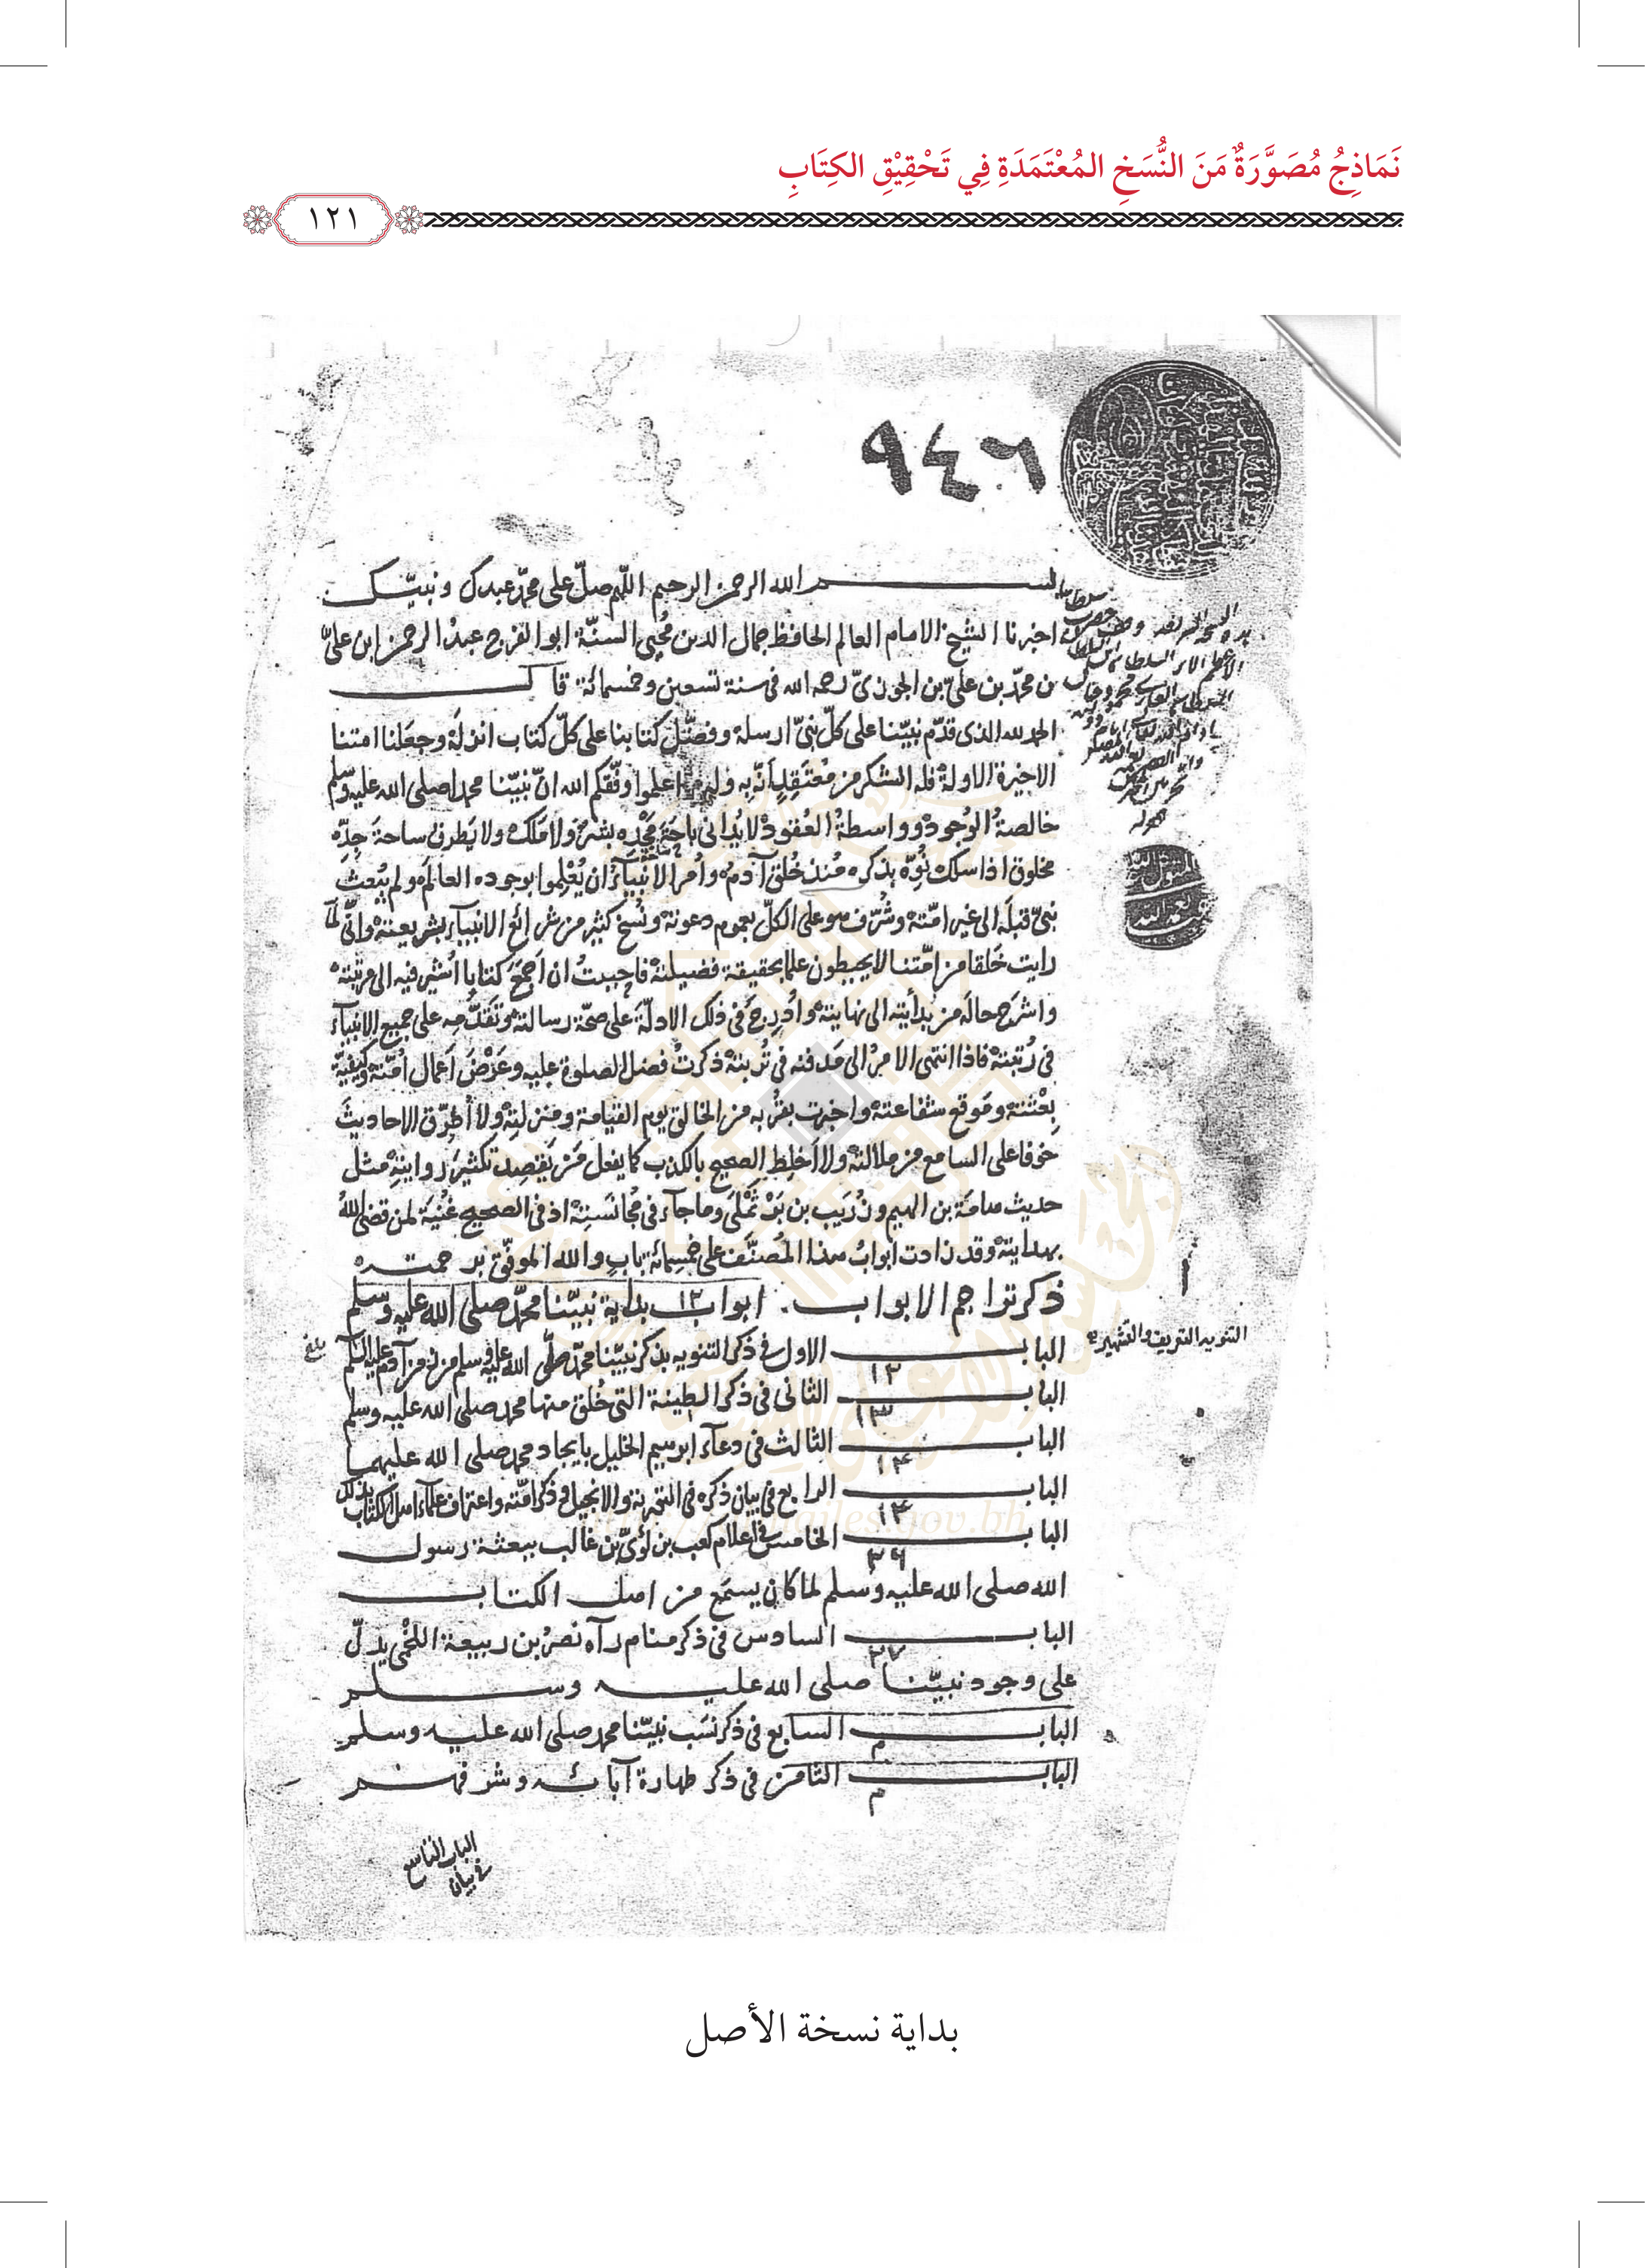 نَمَاذِجُ مُصَوَّرَةٌ مَنَ النُّسَخِ المُعْتَمَدَةِ فِي تَحْقِيْقِ الكِتَابِ
١٢١
٩٤٦
بسم الله الرحمن الرحيم اللهم صلّ على محمّد عبدك ونبيّك
اخبرنا الشيخ الامام العالم الحافظ جمال الدين مُحيى السنّة ابو الفرج عبدُ الرحمن ابن علىّ
بن محمّد بن علىّ بن الجوزىّ رحمه الله فى سنة تسعين وخمسمائة قال
الحمد لله الذى قدّم نبيّنا على كلّ نبىّ ارسله وفضّل كتابنا على كلّ كتاب انزله وجعلنا امتنا
الاخيرة الاولة فله الشكر من مُعْتَقِدٍ انّه به وله اعلموا وفّقكم الله انّ نبيّنا محمدا صلى الله عليه وسلم
خالصةُ الوُجود وواسطةُ العُقود لا يُدانى باحَة مَجْدِه بشرٌ ولا مَلَك ولا يَطرق ساحةَ جِدِّه
مخلوق اذا سلك نُوِّه بذكره مُنذ خُلق آدم وأُمر الانْبِيَآءُ ان يُعْلِموا بوجوده العالَمَ ولم يُبعث
نبىّ قبلَه الى غير امّته وشُرّف هو على الكلّ بعموم دعوته ونُسخ كثير من شرائع الانبيآء بشريعته وانّى لما
رايت خَلقا من امّتنا لا يحيطون علما بحقيقة فضيلته فاحببتُ ان اَجمَعَ كتابا اُشير فيه الى مرتبته
واشرَح حالَه من بدأيته الى نهايته واُدرِجَ فى ذلك الادلّةَ على صحّة رسالته وتَقَدُّمِه على جميع الانبيآء
فى رُتبته فاذا انتهى الامرُ الى مَدفنه فى تُربته ذكرتُ فضل الصلوة عليه وعَرْضَ اَعمال اُمّته وكيفيّة
بِعْثَتِه ومَوقع شفاعته واخبرت بقُربه من الخالق يوم القيامة ومنزلته ولا أطرّق الاحاديثَ
خوفا على السامع من ملالته ولا اَخلِط الصحيح بالكذب كما يفعل مَن يَقصِد تكثيرَ روايتِه مثل
حديث هامَة بن الهيم وزُرَيب بن بَرْثَمْلَى وما جآء فى مُجانَسَتِه اذ فى الصحيح غُنيَة لمن قضى اللهُ
بهدايته وقد زادت ابوابُ هذا المُصنَّف على خمسمائة باب والله الموفّق برحمته
ذكر تراجم الابواب. ابواب بداية نبيّنا محمّد صلى الله عليه وسلم
١٢
التنويه التعريف والتشهير
الباب الاول فى ذكر التنويه بذكر نبيّنا محمّد صلّى الله عليه وسلم من زمن آدم عليه السلم
بلغ
١٢
الباب الثانى فى ذكر الطينة التى خُلق منها محمد صلى الله عليه وسلم
١٣
الباب الثالث فى دعآء ابرهيم الخليل بايجاد محمد صلى الله عليهما
١٤
الباب الرابع فى بيان ذكره فى التورية والانجيل وذكر امّته واعتراف علمآء اهل الكتاب بذلك
١٤
الباب الخامس فى اعلام كعب بن لُؤىّ بن غالب ببعثة رسول
٢٦
الله صلى الله عليه وسلم لما كان يسمَع من اهل الكتاب
الباب السادس فى ذكر منام رآه نصرُ بن ربيعة اللخْمى يدلّ
٢٧
على وجود نبيّنا صلى الله عليه وسلم
الباب السابع فى ذكر نسَب نبيّنا محمد صلى الله عليه وسلم
م
الباب الثامن فى ذكر طهارة آبائه وشرفهم
م
الباب التاسع
فى بيان
بداية نسخة الأصل